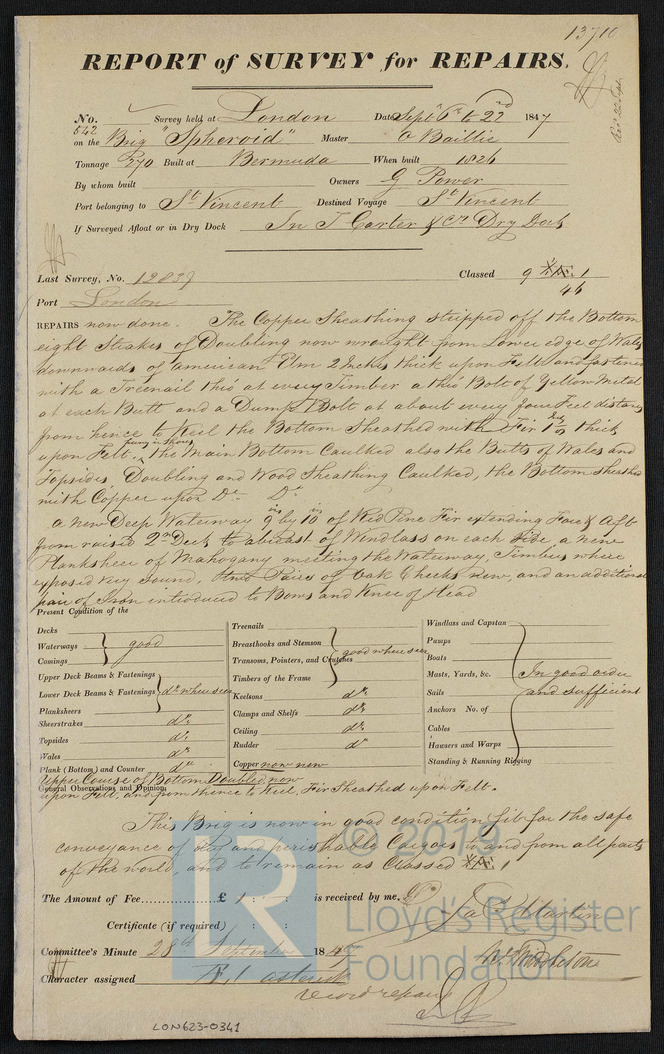 13710
REPORT of SURVEY for REPAIRS.
No. 542 Survey held at London Date Sept 6th to 22nd 1847
on the Brig "Spheroid" Master O Baillie
Tonnage 270 Built at Bermuda When built 1826
By whom built Owners G Power
Port belonging to St Vincent Destined Voyage St Vincent
If Surveyed Afloat or in Dry Dock In T Carter & Co Dry Dock
Last Survey, No. 12839 Classed 9 Æ 1
46
Port London
REPAIRS now done. The Copper Sheathing stripped off the Bottom
eight Strakes of Doubling now wrought from Lower edge of Wales
downwards of american Elm 2 Inches thick upon Felt and fastened
with a Treenail thro at every Timber a thro Bolt of Yellow Metal
at each Butt and a Dump Bolt at about every four Feet distance
from hence to Keel the Bottom Sheathed with Fir thick
upon Felt. the Main Bottom Caulked also the Butts of Wales and
Topsides Doubling and Wood Sheathing Caulked, the Bottom sheathed
with Copper upon Do Do
a new Deep Waterway 9 ins by 10 ins of Red Pine Fir extending Fore & Aft
from raised 2nd Deck to abreast of Windlass on each Side, a new
Planksheer of Mahogany meeting the Waterway, Timbers where
exposed very sound, Pairs of Oak Cheeks new, and an additional
pair of Iron introduced to Bows and Knee of Head
Present Condition of the
Decks
Waterways good
Comings
Upper Deck Beams & Fastenings
Lower Deck Beams & Fastenings do where seen
Planksheers
Sheerstrakes do
Topsides do
Wales do
Plank (Bottom) and Counter do
Treenails
Breasthooks and Stemson good where seen
Transoms, Pointers, and Crutches
Timbers of the Frame
Keelsons do
Clamps and Shelfs do
Ceiling do
Rudder do
Copper now new
Windlass and Capstan
Pumps
Boats
Masts, Yards, &c. In good order
Sails and sufficient
Anchors No. of
Cables
Hawsers and Warps
Standing & Running Rigging
Upper Course of Bottom Doubled now
General Observations and Opinion,
upon Felt, and from thence to Keel, Fir Sheathed upon Felt.
This Brig is now in good condition fit for the safe
conveyance of dry and perishable Cargoes to and from all parts
of the world, and to remain as Classed Æ 1
The Amount of Fee £ 1 : : is received by me,
Jas Martin
Certificate (if required) : :
Committee's Minute 28th September 1847
Character assigned Æ 1
record repairs
LON623-0341
© 2019
Lloyd's Register
Foundation